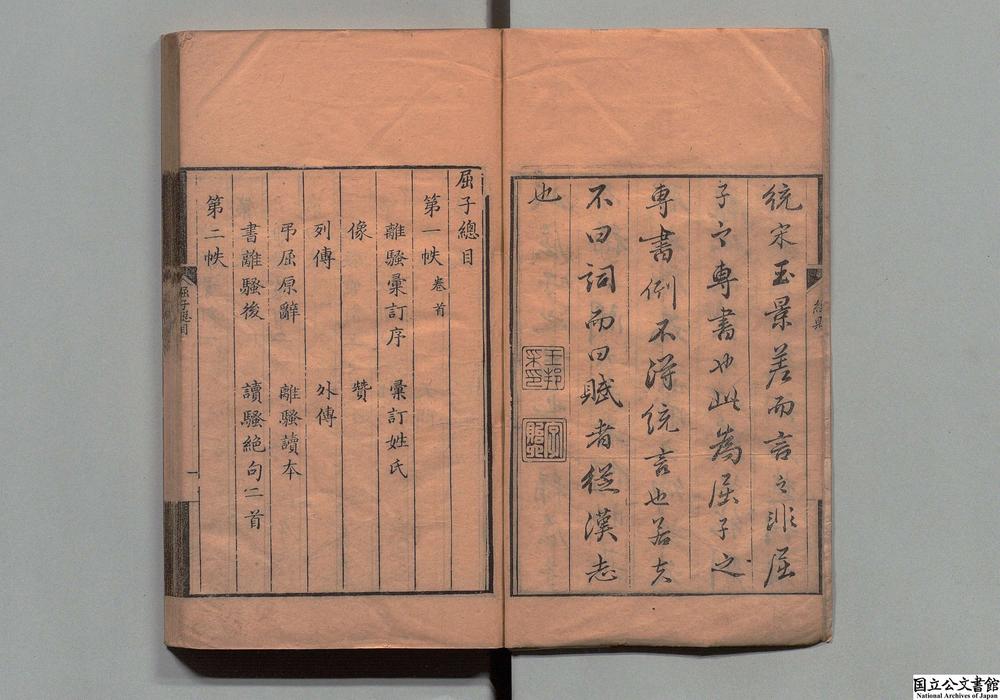 統宋玉景差而言之非屈
子之專書也此為屈子之
專書例不得統言也若夫
不曰詞而曰賦者從漢志
也
王邦
采印
屈子總目
第一帙 卷首
離騷彙訂序 彙訂姓氏
像 贊
列傳 外傳
弔屈原辭 離騷讀本
書離騷後 讀騷絶句二首
第二帙
屈子總目
一
国立公文書館
National Archives of Japan